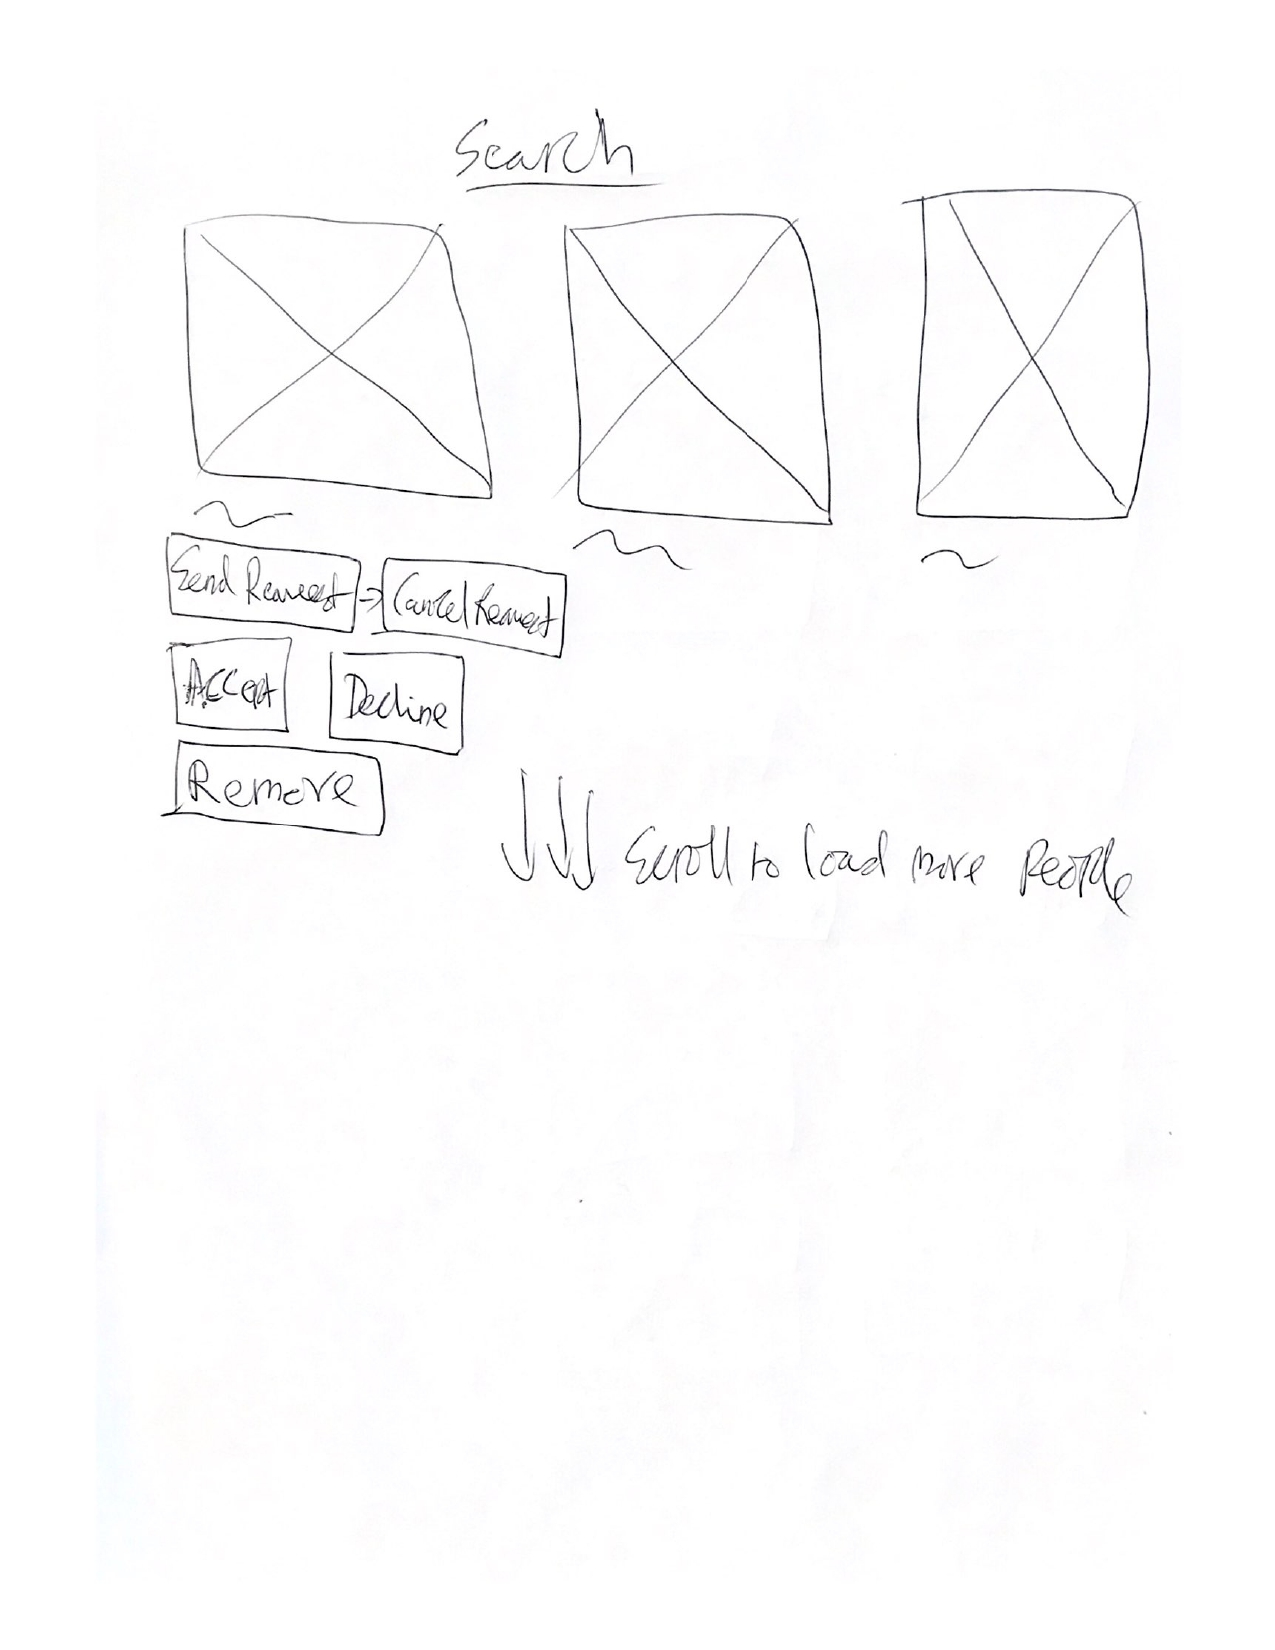 Search
Send Request => Cancel Request
Accept Decline
Remove
Scroll to load more people